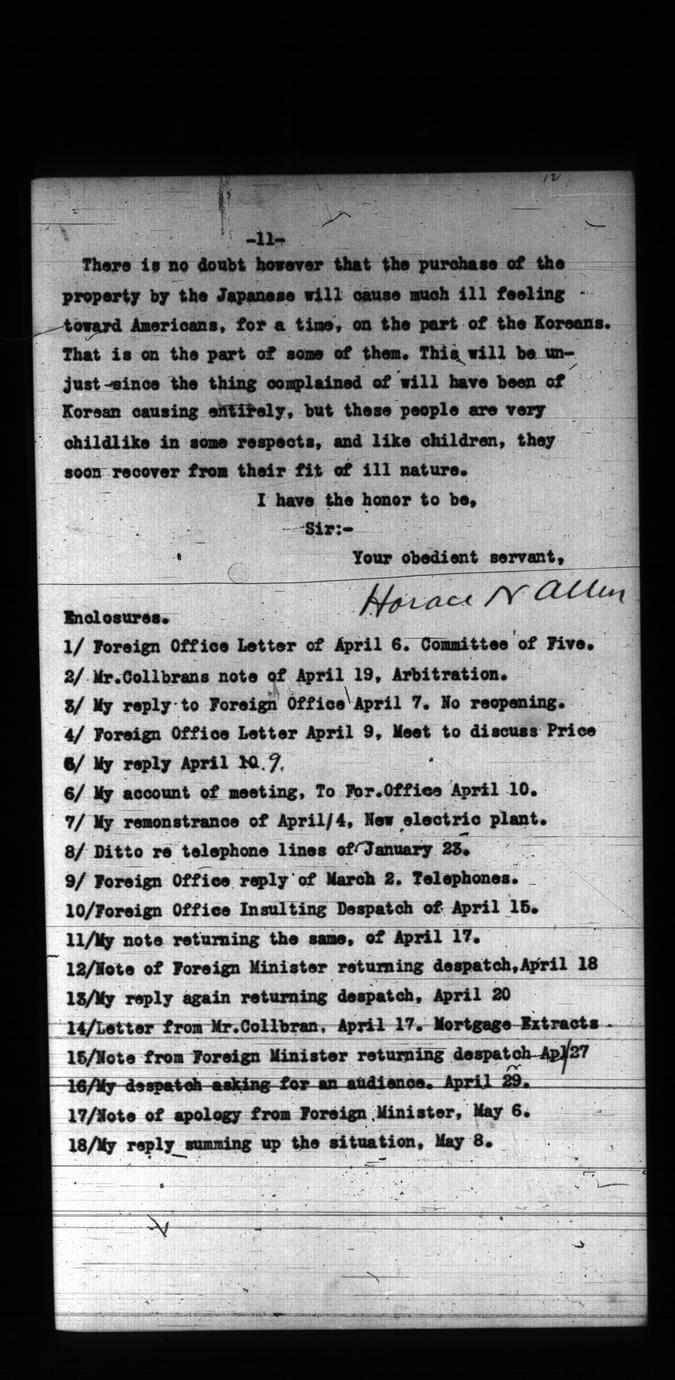 12
-11-
There is no doubt however that the purchase of the
property by the Japanese will cause much ill feeling
toward Americans, for a time, on the part of the Koreans.
That is on the part of some of them. This will be un-
just since the thing complained of will have been of
Korean causing entirely, but these people are very
childlike in some respects, and like children, they
soon recover from their fit of ill nature.
I have the honor to be,
Sir:-
Your obedient servant,
Horace N Allen
Enclosures.
1/ Foreign Office Letter of April 6. Committee of Five.
2/ Mr.Collbrans note of April 19, Arbitration.
3/ My reply to Foreign Office April 7. No reopening.
4/ Foreign Office Letter April 9, Meet to discuss Price
5/ My reply April 10. 9.
6/ My account of meeting, To For.Office April 10.
7/ My remonstrance of April/4, New electric plant.
8/ Ditto re telephone lines of January 23.
9/ Foreign Office reply of March 2. Telephones.
10/Foreign Office Insulting Despatch of April 15.
11/My note returning the same, of April 17.
12/Note of Foreign Minister returning despatch,April 18
13/My reply again returning despatch, April 20
14/Letter from Mr.Collbran, April 17. Mortgage Extracts
15/Note from Foreign Minister returning despatch Apl/27
16/My despatch asking for an audience. April 29.
17/Note of apology from Foreign Minister, May 6.
18/My reply summing up the situation, May 8.